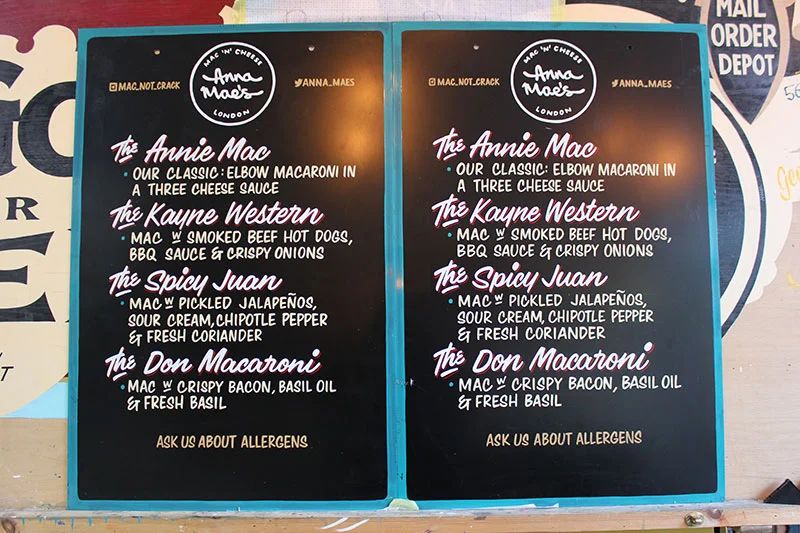 MAIL
ORDER
DEPOT
MAC 'N' CHEESE
Anna
Mae's
LONDON
MAC_NOT_CRACK
ANNA_MAES
The Annie Mac
• OUR CLASSIC: ELBOW MACARONI IN
A THREE CHEESE SAUCE
The Kayne Western
• MAC W SMOKED BEEF HOT DOGS,
BBQ SAUCE & CRISPY ONIONS
The Spicy Juan
• MAC W PICKLED JALAPEÑOS,
SOUR CREAM, CHIPOTLE PEPPER
& FRESH CORIANDER
The Don Macaroni
• MAC W CRISPY BACON, BASIL OIL
& FRESH BASIL
ASK US ABOUT ALLERGENS
MAC 'N' CHEESE
Anna
Mae's
LONDON
MAC_NOT_CRACK
ANNA_MAES
The Annie Mac
• OUR CLASSIC: ELBOW MACARONI IN
A THREE CHEESE SAUCE
The Kayne Western
• MAC W SMOKED BEEF HOT DOGS,
BBQ SAUCE & CRISPY ONIONS
The Spicy Juan
• MAC W PICKLED JALAPEÑOS,
SOUR CREAM, CHIPOTLE PEPPER
& FRESH CORIANDER
The Don Macaroni
• MAC W CRISPY BACON, BASIL OIL
& FRESH BASIL
ASK US ABOUT ALLERGENS